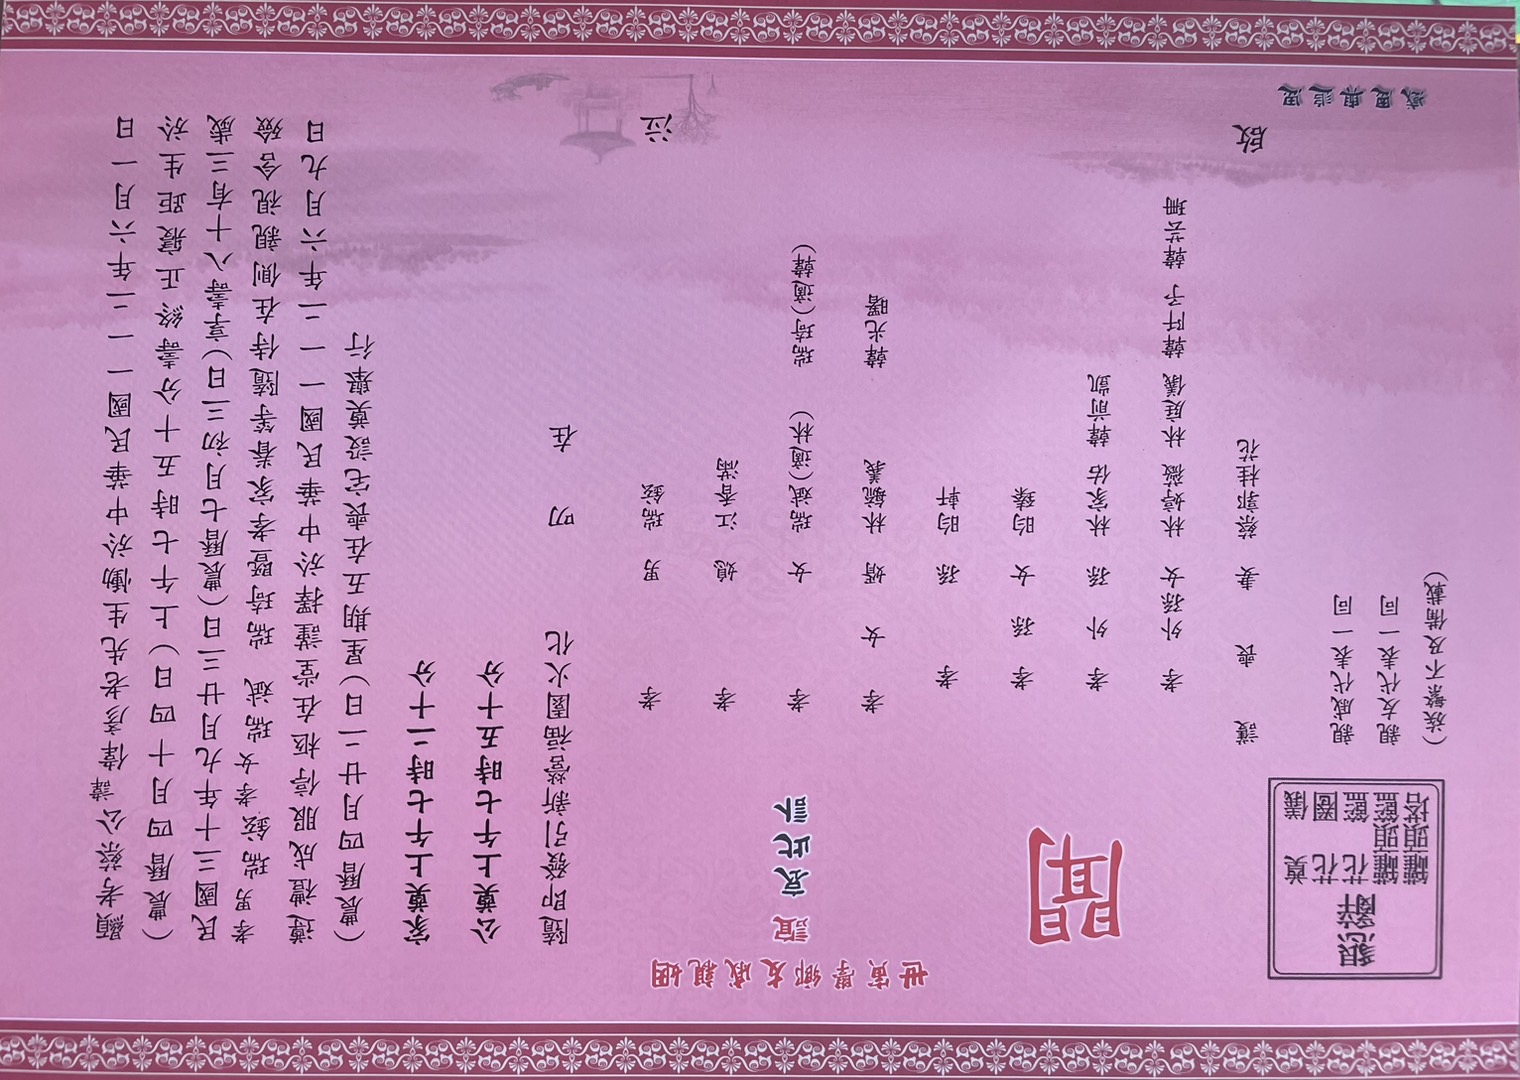 顯考蔡公諱偉彥老先生慟於中華民國一一二年六月一日
(農曆四月十四日)上午七時五十分壽終正寢距生於
民國三十年九月廿三日(農曆七月初三日)享壽八十有三歲
孝男瑞鋐 孝女瑞斌 瑞琦暨孝家眷等隨侍在側親視含殮
遵禮成服停柩在堂謹擇於中華民國一一二年六月九日
(農曆四月廿二日)星期五在喪宅設奠舉行
家奠上午七時二十分
公奠上午七時五十分
隨即發引新營福園火化 叨在
世寅學鄉友戚親姻
誼 哀此訃
聞
孝男 瑞鋐 泣
孝媳 江香滿
孝女 瑞斌(適林) 瑞琦(適韓)
孝女婿 林毓義 韓光曙
孝孫 昀軒
孝孫女 昀臻
孝外孫 林家佑 韓前凱
孝外孫女 林婷薇 林庭儀 韓阡予 韓芸珊
護喪妻 蔡郭桂花 啟
親戚代表一同
親友代表一同
(族繁不及備載)
懇辭
奠儀
花圈
花籃
罐頭籃
罐頭塔
感恩與追思